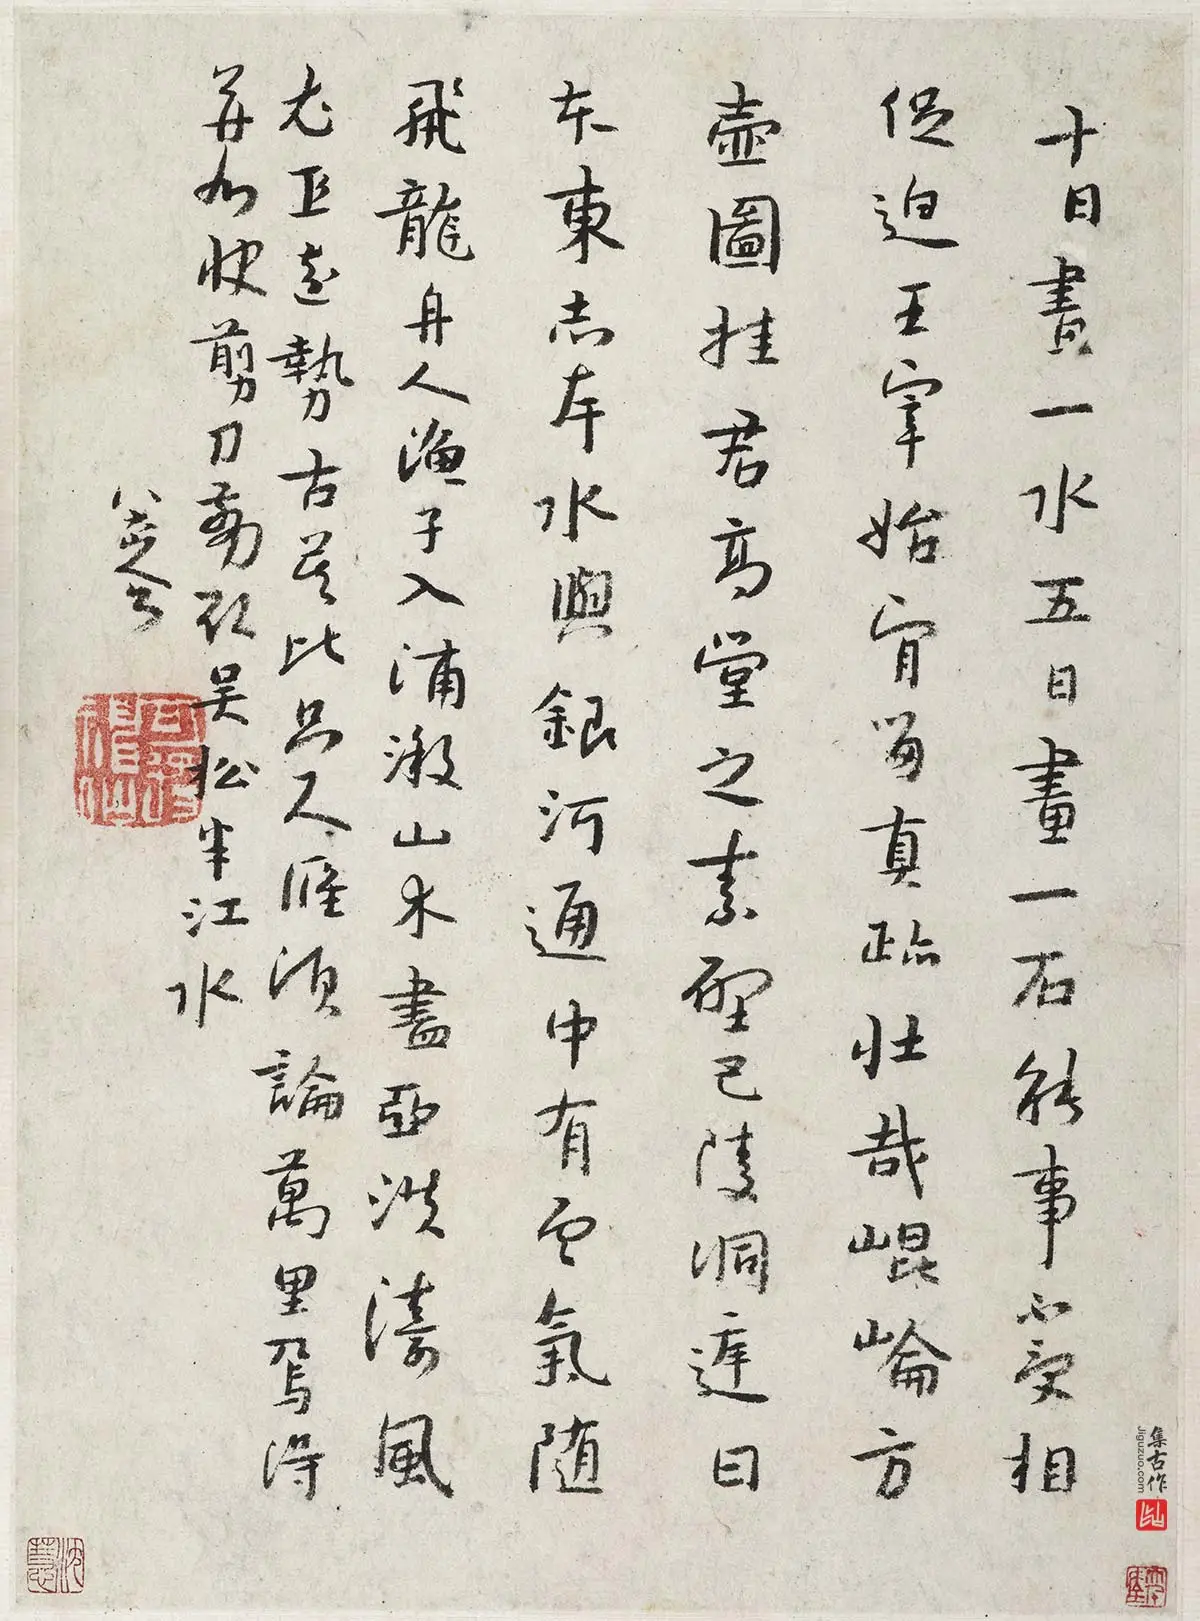 十日畫一水五日畫一石能事不受相
促迫王宰始肯留真跡壯哉崐崘方
壺圖挂君高堂之素壁巴陵洞庭日
本東赤岸水與銀河通中有雲氣隨
飛龍舟人漁子入浦漵山木盡亞洪濤風
尤工遠勢古莫比咫尺應須論萬里焉得
并州快剪刀剪取吳松半江水
八大山人
可得神仙
集古作
Jiguzuo.com